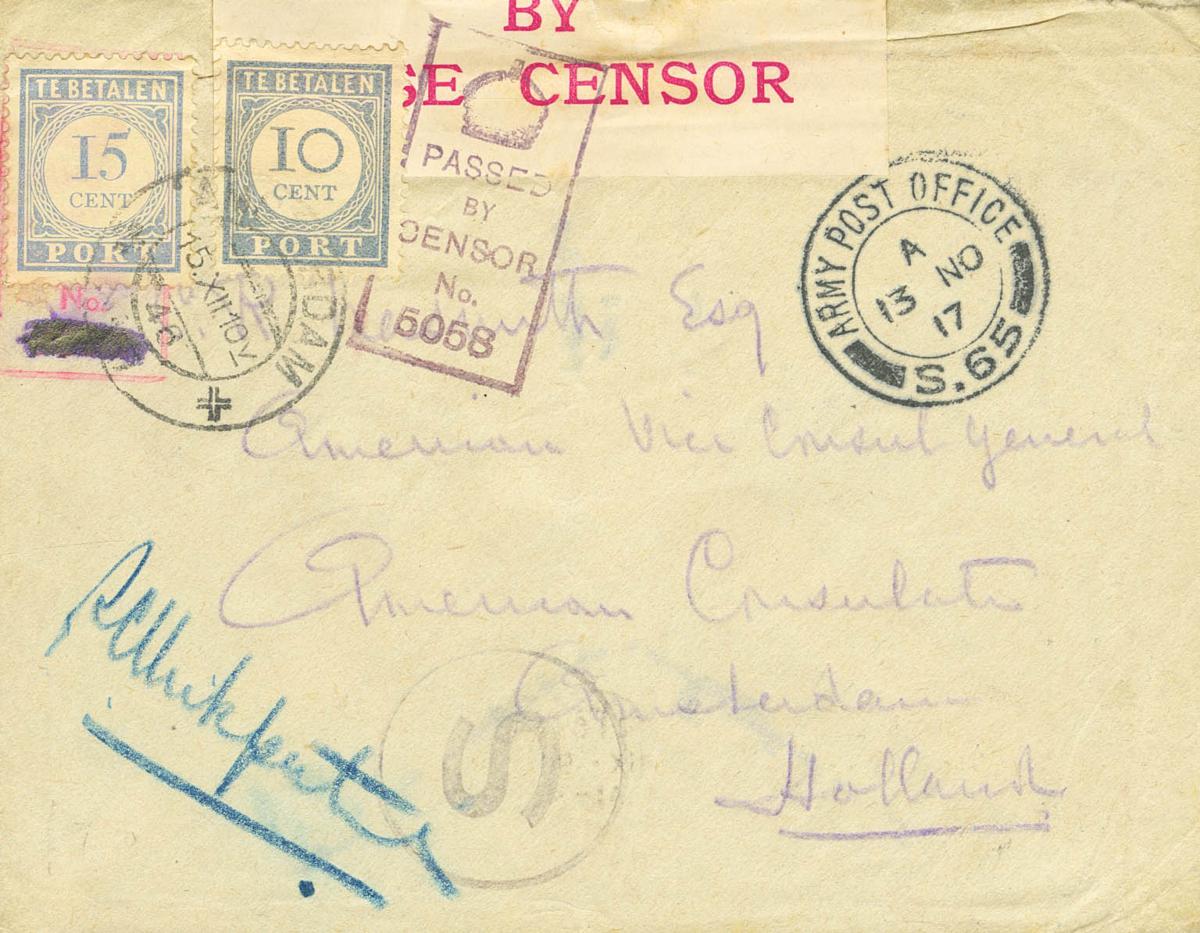 BY
SE CENSOR
TE BETALEN
15
CENT
PORT
TE BETALEN
10
CENT
PORT
PASSED
BY
CENSOR
No.
5058
ARMY POST OFFICE
A
13 NO
17
S.65
No.
RDAM
Esq
American Vice Consul General
American Consulate
Amsterdam
Holland
S